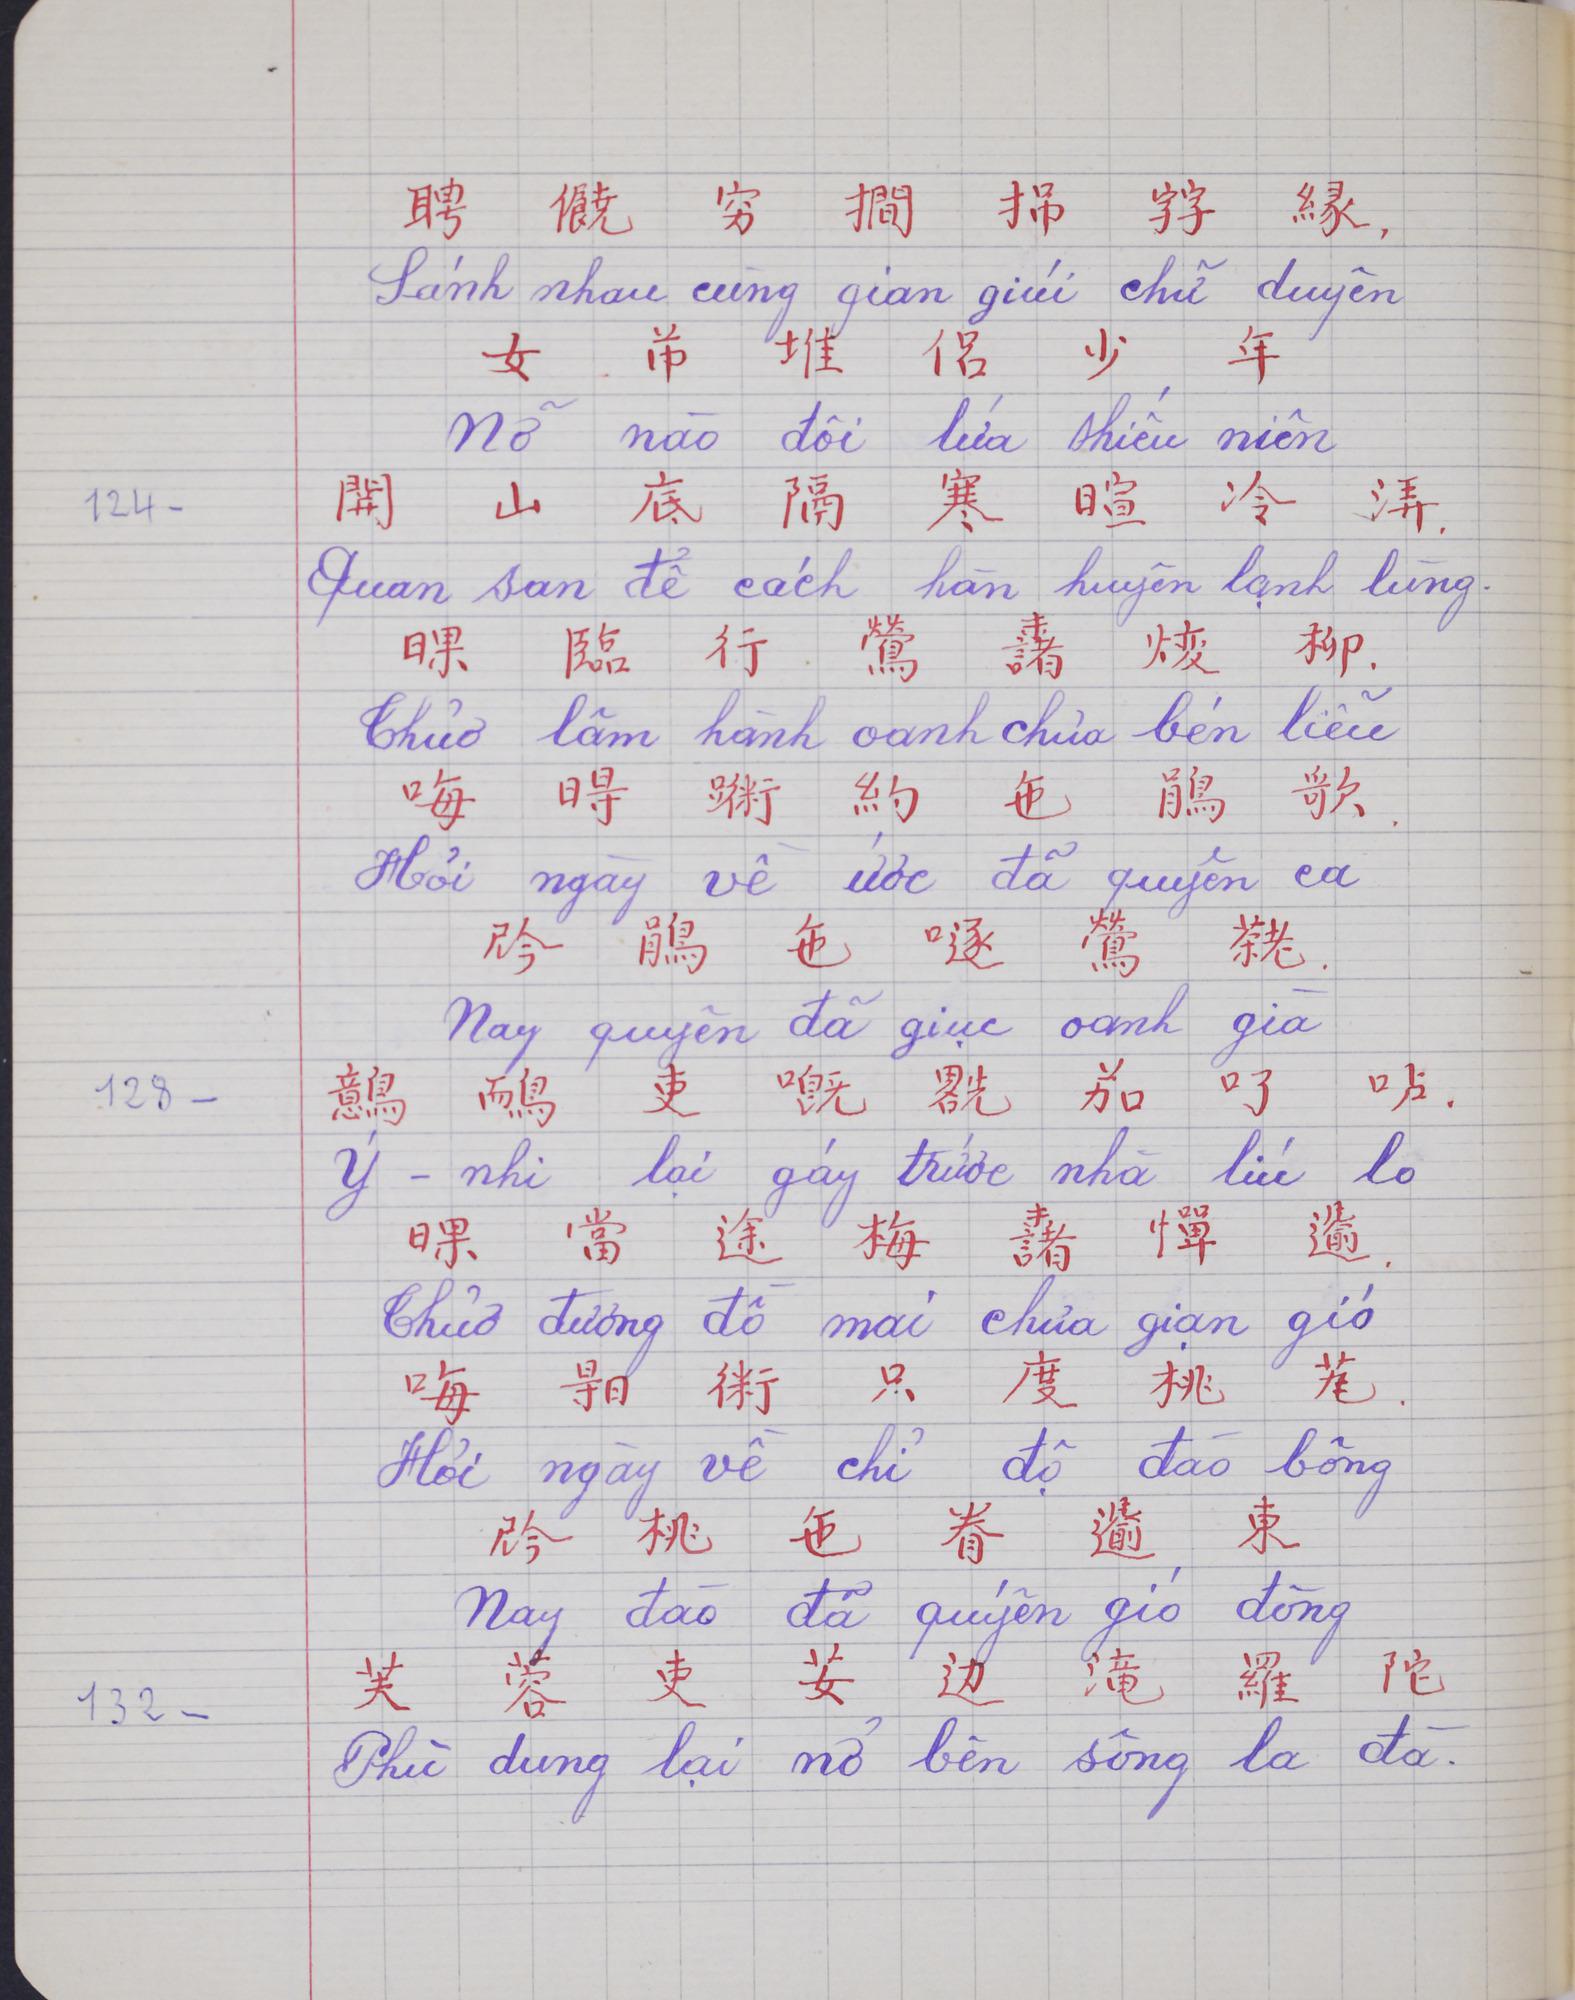 聘 饒 穷 擱 掃 字字 縁.
Sánh nhau cùng gian giúi chữ duyên
女 芇 堆 侣 少 年
Nỡ nào đôi lứa thiếu niên
124- 開 山 底 隔 寒 暄 冷 㳥.
Quan san để cách hàn huyên lạnh lùng.
䁬 臨 行 鶯 渚 㶿 柳.
Thuở lâm hành oanh chửa bén liễu
𠳨 㝵 術 約 㐌 鵑 歌.
Hỏi ngày về ước đã quyên ca
𠉞 鵑 㐌 㖹 鶯 𦓅.
Nay quyên đã giục oanh già
128- 鷾 鴯 吏 嘅 𠓀 茹 叮 呫.
Ý - nhi lại gáy trước nhà líu lo
當 途 梅 憚
Thuở đương đồ mai chửa gian gió
𠳨 術 只 度 桃 芼.
Hỏi ngày về chỉ độ đào bông
桃 㐌 眷 東
Nay đào đã quyến gió đông
132- 芙 蓉 吏 边 滝 羅 陀
Phù dung lại nở bên sông la đà.